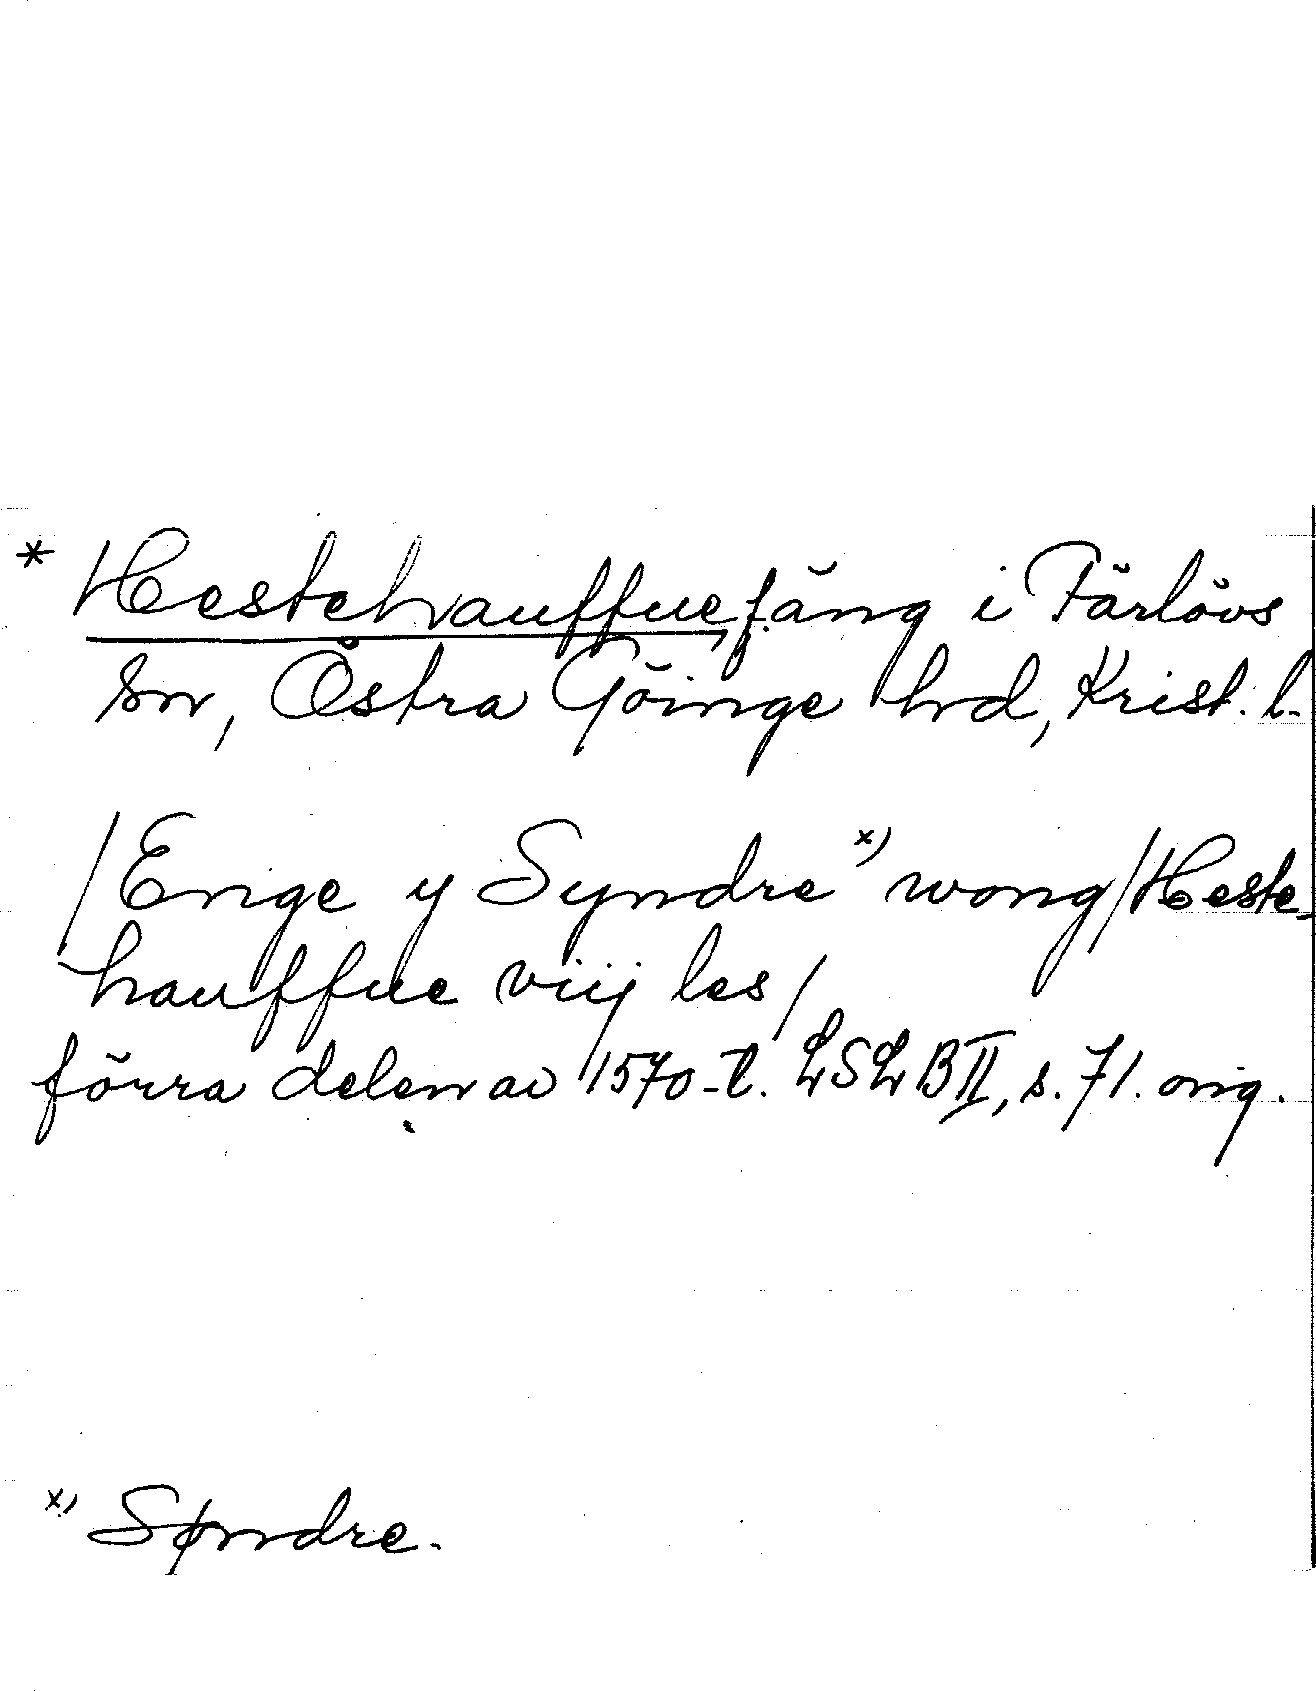 * Hestehauffue, f. äng i Färlövs
sn, Östra Göinge hd, Krist. l.
/Enge y Syndre x) wong/Heste-
hauffue viij les/
förra delen av 1570-t. LSLB II, s. 71. orig.
x) Søndre.